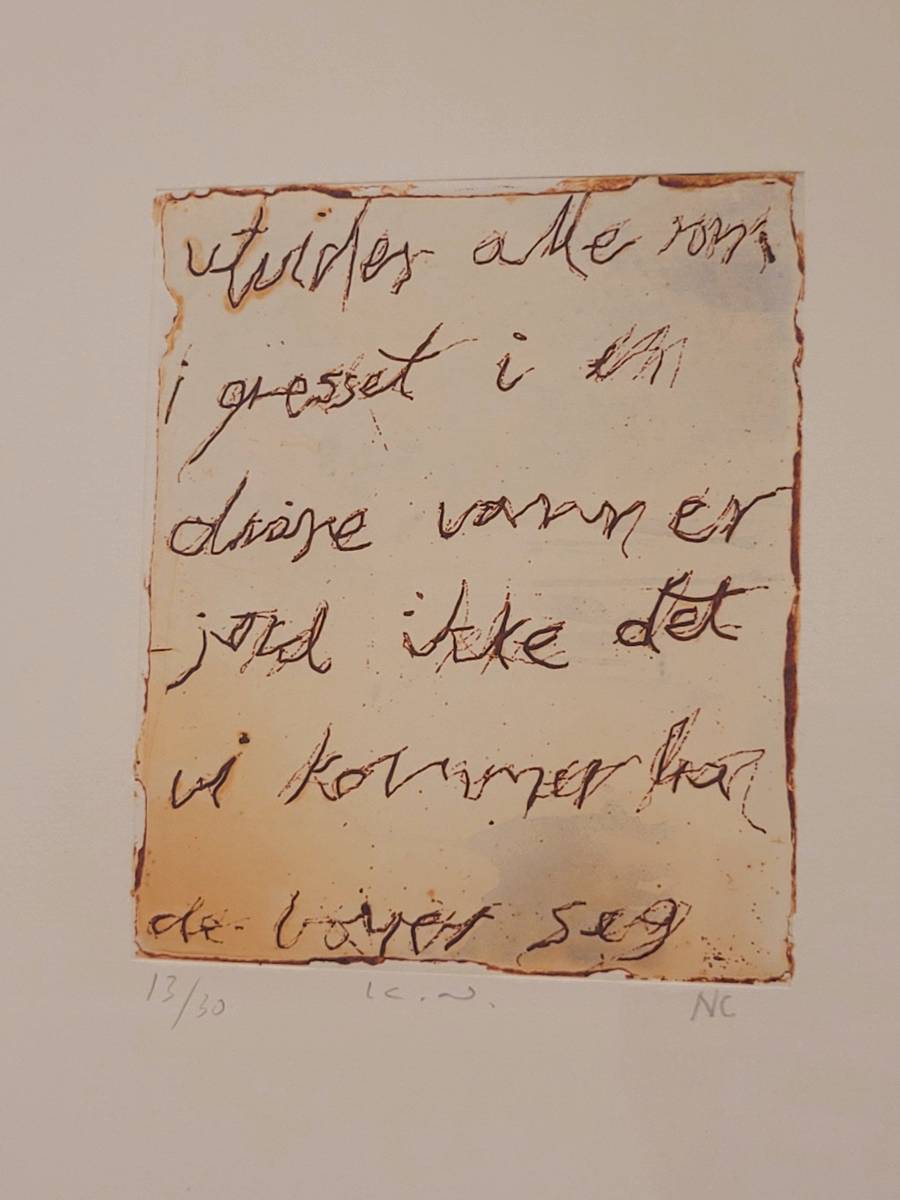 utvider alle rom
i gresset i en
disse vann er
jord ikke det
vi kommer kan
de bøyer seg
13/30 K.N. NC